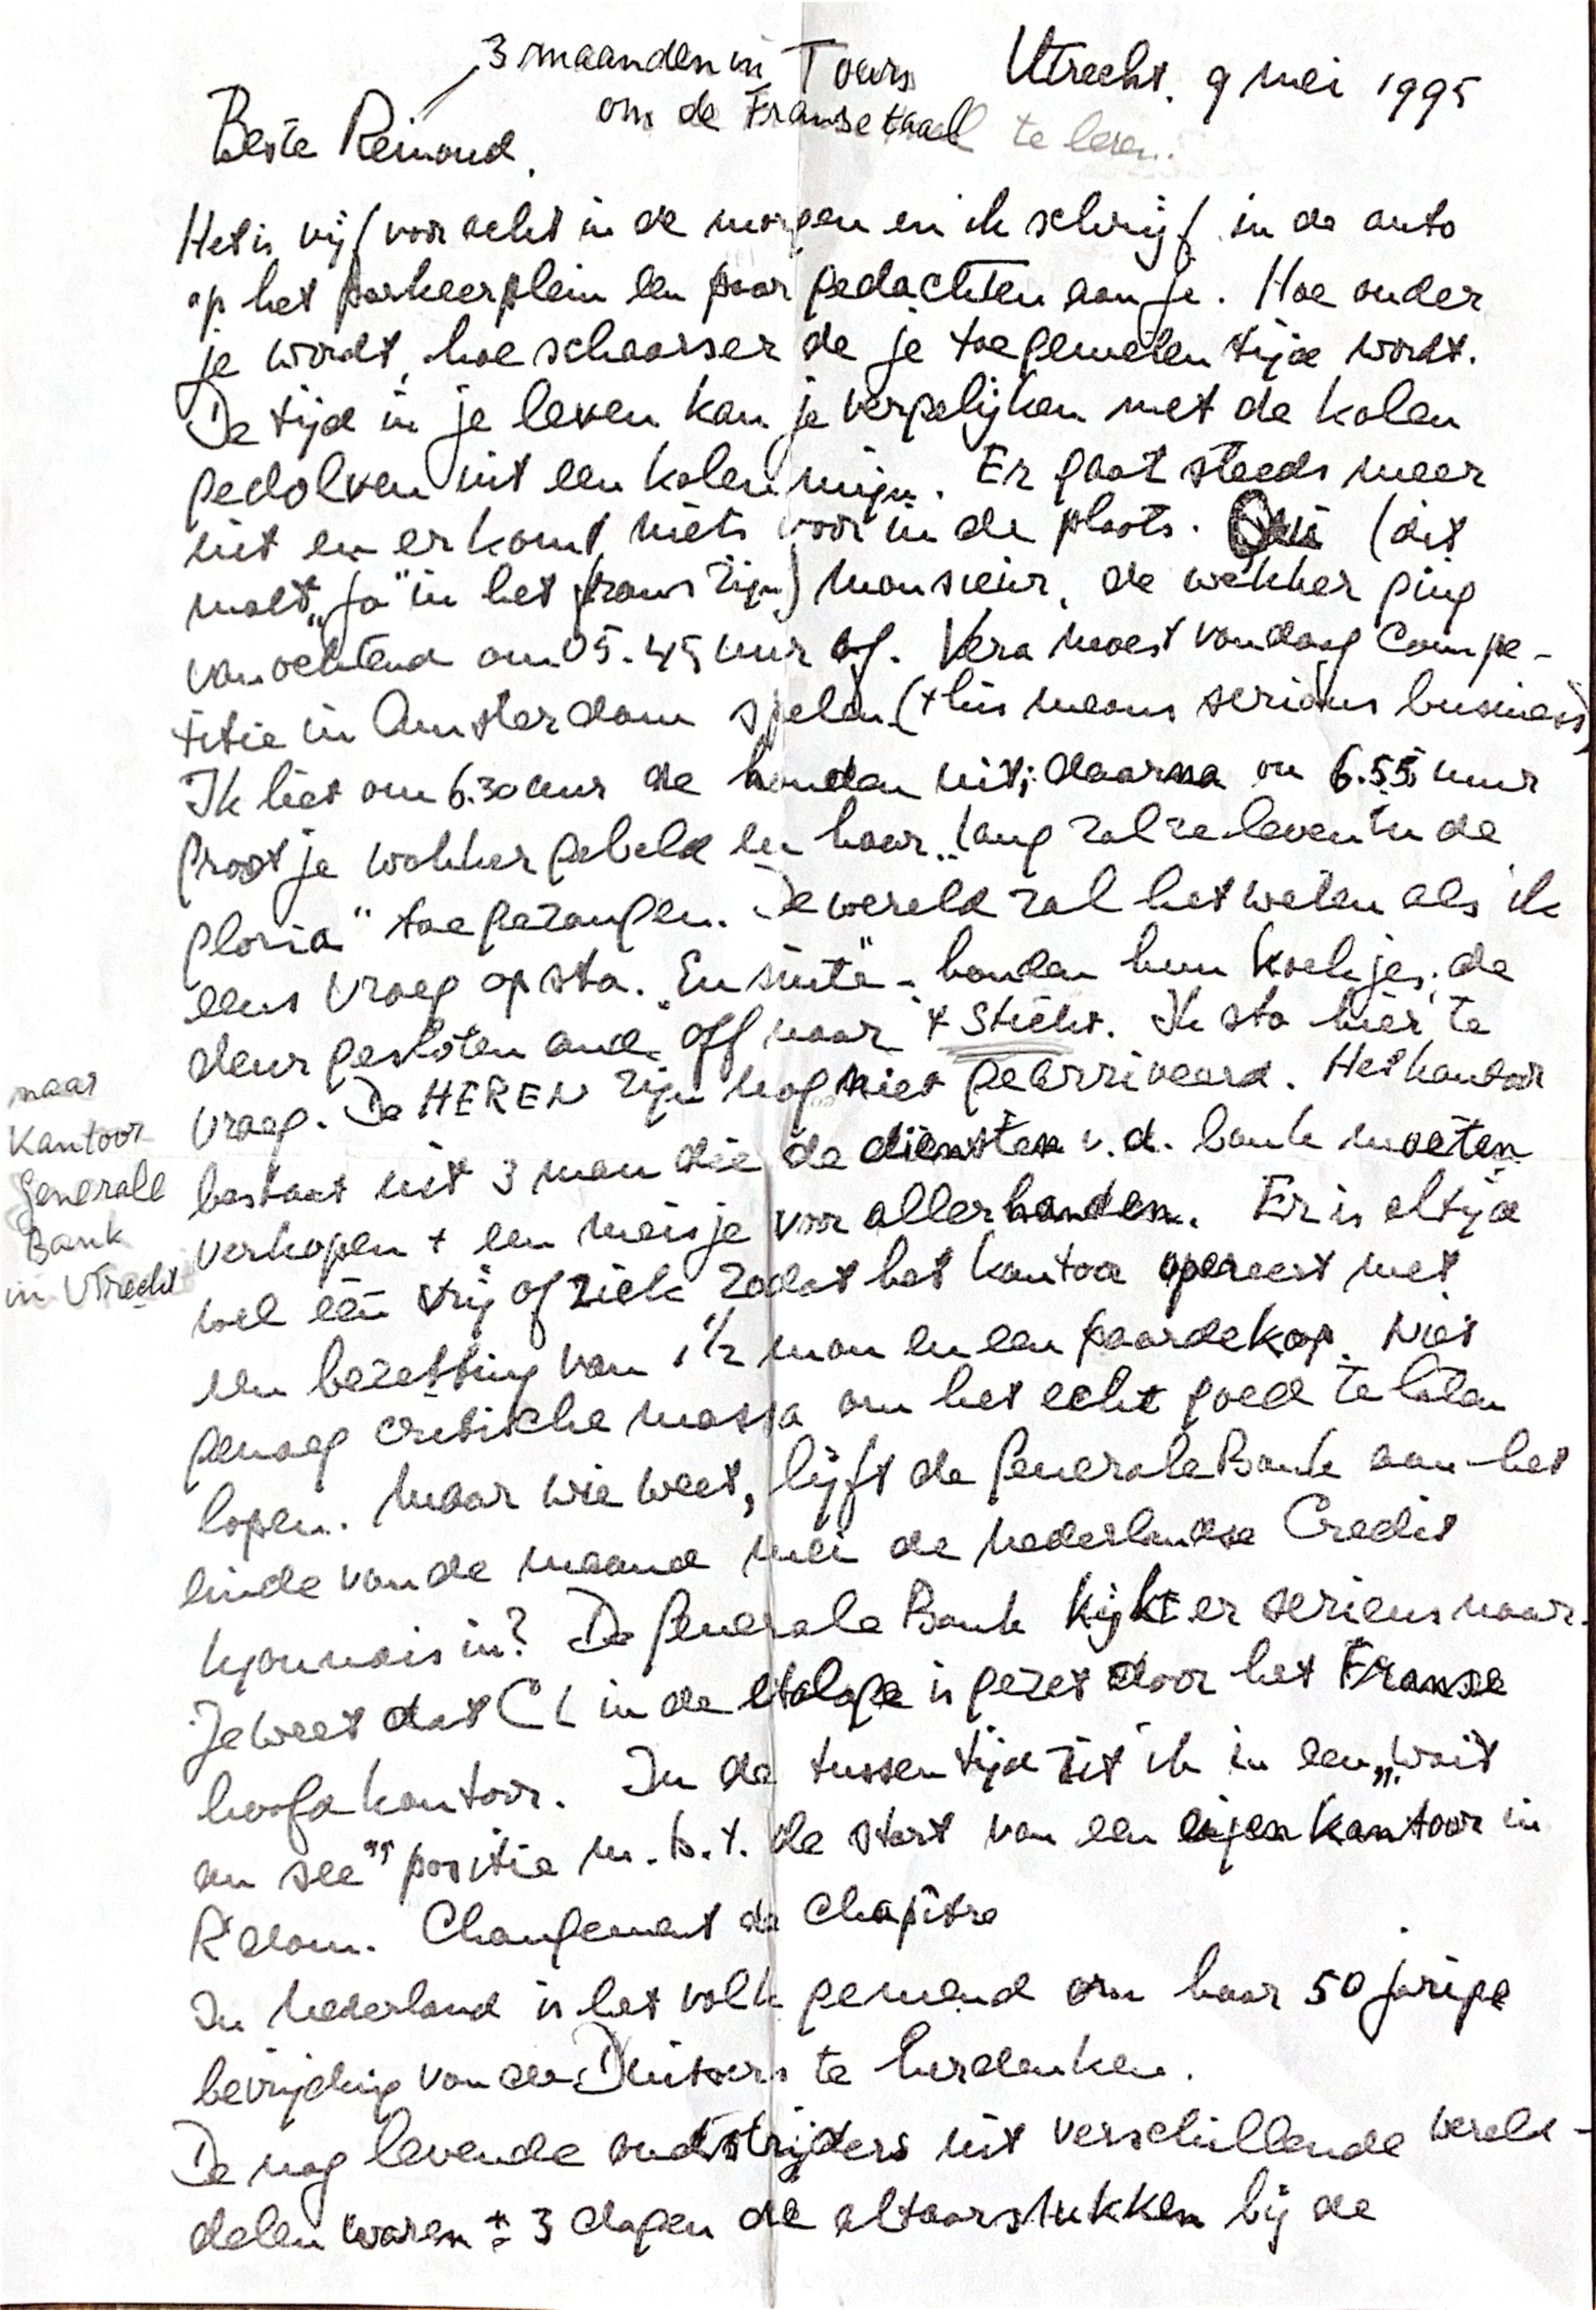 3 maanden in Tours
om de Franse taal te leren.
Utrecht. 9 mei 1995
Beste Reinoud,
Het is vijf voor acht in de morgen en ik schrijf in de auto
op het parkeerplein een paar gedachten aan je. Hoe ouder
je wordt, hoe schaarser de je toegemeten tijd wordt.
De tijd in je leven kan je vergelijken met de kolen
gedolven uit een kolenmijn. Er gaat steeds meer
uit en er komt niets voor in de plaats. Oui (dit
moet „ja" in het frans zijn) monsieur, de wekker ging
vanochtend om 05.45 uur af. Vera moest vandaag Compe-
titie in Amsterdam spelen (this means serious business)
Ik liet om 6.30 uur de honden uit; daarna om 6.55 uur
grootje wakker gebeld en haar „lang zal ze leven in de
gloria" toegezongen. De wereld zal het weten als ik
eens vroeg opsta. "En suite" - honden hun koekjes, de
deur gesloten and "off" naar 't Sticht. Ik sta hier te
vroeg. De HEREN zijn nog niet gearriveerd. Het kantoor
bestaat uit 3 man die de diensten v.d. bank moeten
verkopen + een meisje voor allerhanden. Er is altijd
wel één vrij of ziek zodat het kantoor opereert met
een bezetting van 1 1/2 man en een paardekop. Niet
genoeg critische massa om het echt goed te laten
lopen. Maar wie weet, lijft de Generale Bank aan het
einde van de maand mei de nederlandse Credit
Lyonnais in? De Generale Bank kijkt er serieus naar.
Je weet dat CL in de etalage is gezet door het Franse
hoofdkantoor. In de tussentijd zit ik in een „wait
en see" positie m.b.t. de start van een eigen kantoor in
R'dam. Changement de Chapitre
In Nederland is het volk gewend om haar 50 jarige
bevrijding van de Duitsers te herdenken.
De nog levende oudstrijders uit verschillende wereld-
delen waren ± 3 dagen de altaarstukken bij de
naar
Kantoor
Generale
Bank
in Utrecht